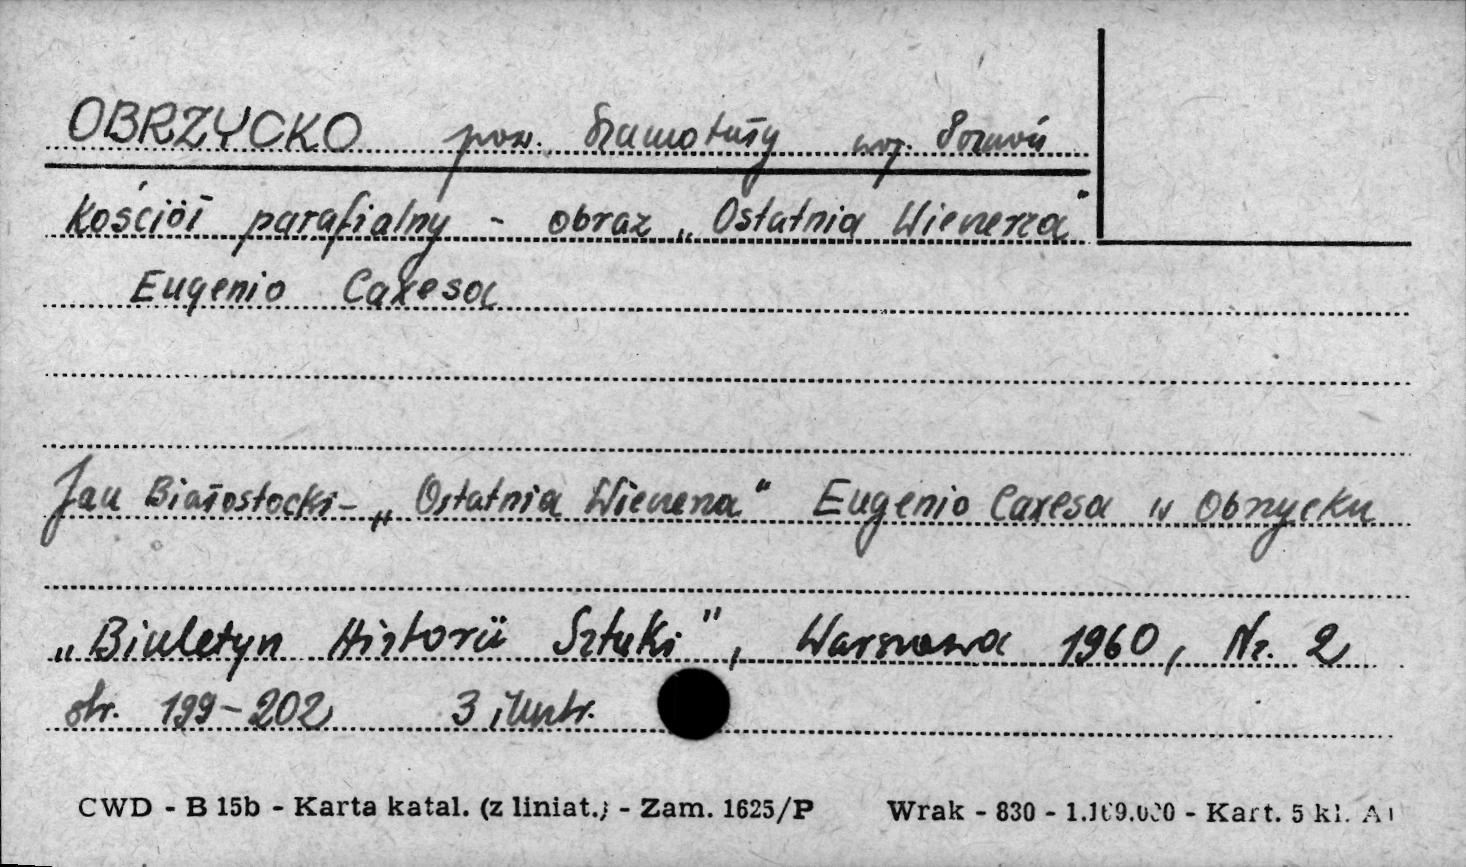 OBRZYCKO pow. Szamotuły woj. Poznań
Kościół parafialny - obraz „Ostatnia Wieczerza"
Eugenio Caxesa
Jan Białostocki - „Ostatnia Wieczerza" Eugenio Caxesa w Obrzycku
„Biuletyn Historii Sztuki", Warszawa 1960, Nr. 2
str. 199-202 3 ilustr.
CWD - B 15b - Karta katal. (z liniat.) - Zam. 1625/P Wrak - 830 - - Kart. 5 kl.